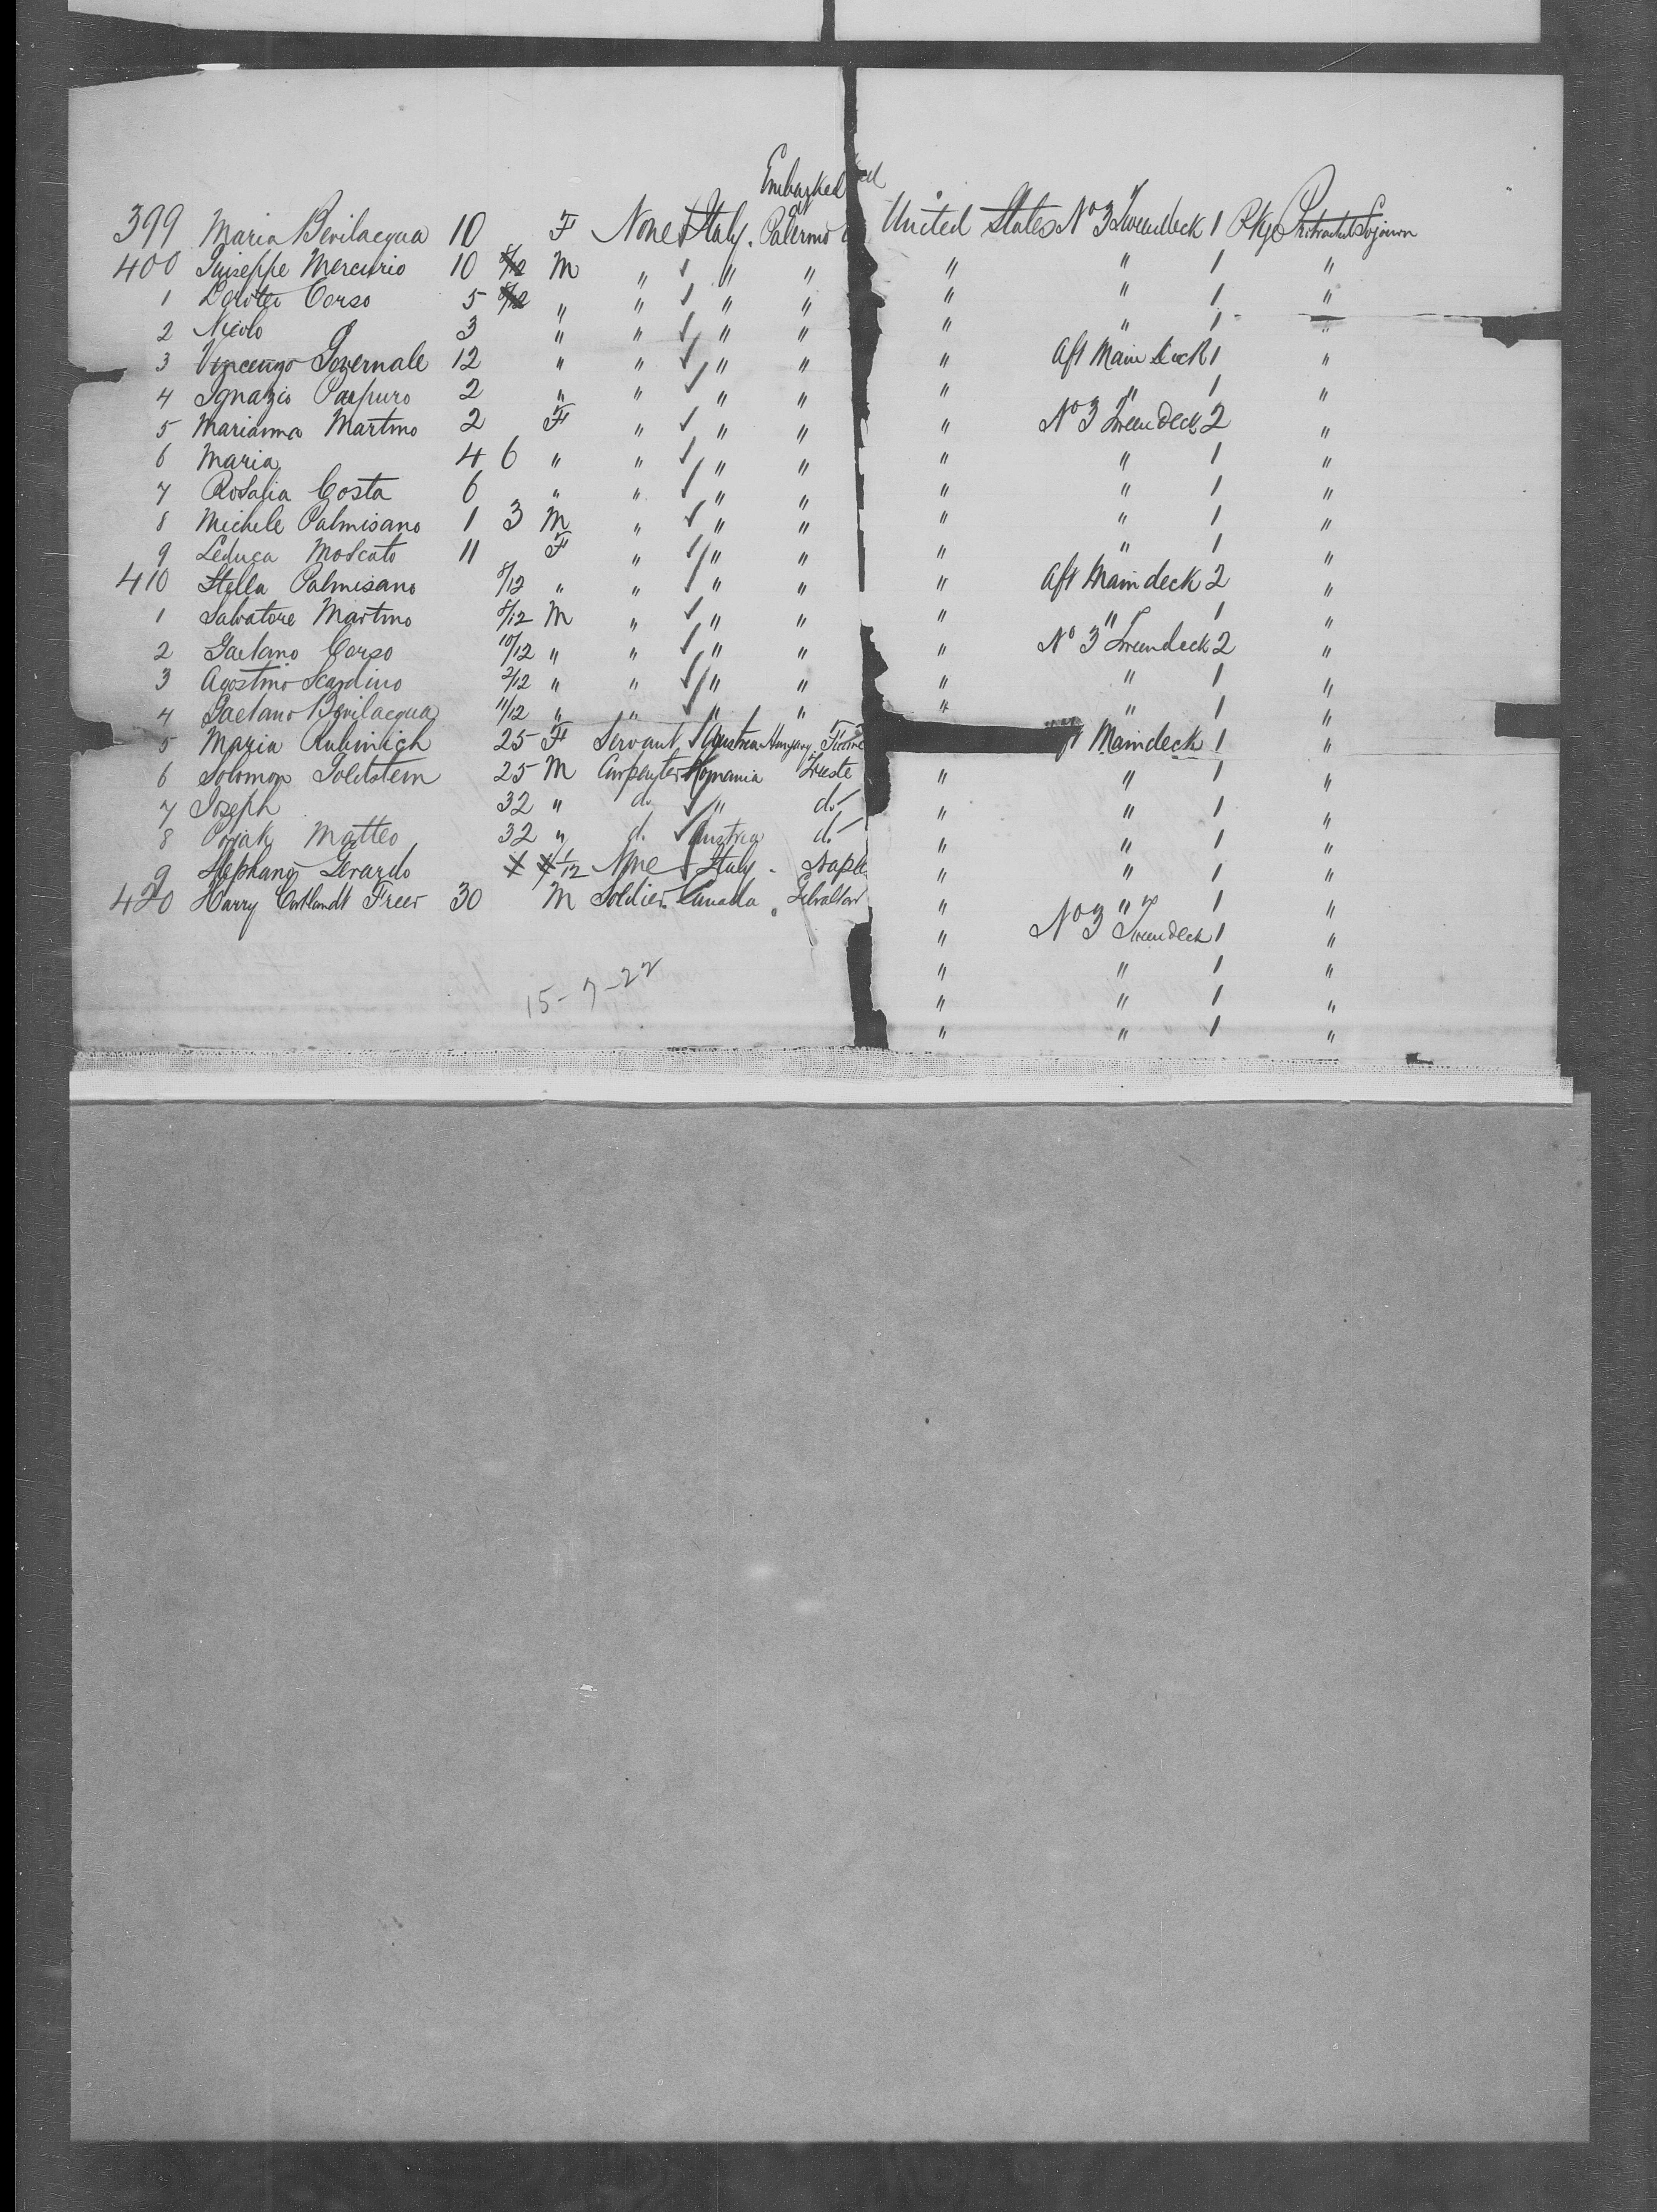 Embarked
at
399 Maria Bevilacqua 10 F None Italy. Palermo United States No 3 Tweendeck 1 Pkge Protracted Sojourn
400 Guiseppe Mercurio 10 M " ✓ " " " " 1 "
1 Corso 5 " " ✓ " " " " 1 "
2 Nicolo 3 " " ✓ " " " " 1 "
3 Vincenzo Governale 12 " " ✓ " " " Aft Main deck 1 "
4 Ignazio Parpuro 2 " " ✓ " " " " 1 "
5 Marianna Martino 2 F " ✓ " " " No 3 Tween Deck 2 "
6 Maria 4 6 " " ✓ " " " " 1 "
7 Rosalia Costa 6 " " ✓ " " " " 1 "
8 Michele Palmisano 1 3 M " ✓ " " " " 1 "
9 Moscato 11 F " ✓ " " " " 1 "
410 Stella Palmisano 8/12 " " ✓ " " " Aft Main deck 2 "
1 Salvatore Martino 8/12 M " ✓ " " " " 1 "
2 Gaetano Corso 10/12 " " ✓ " " " No 3 Tweendeck 2 "
3 Agostino Scardino 2/12 " " ✓ " " " " 1 "
4 Gaetano Bevilacqua 11/12 " " ✓ " " " " 1 "
5 Maria Rubinich 25 F Servant ✓ Austria-Hungary Fiume Maindeck 1 "
6 Solomon Goldstein 25 M Carpenter Romania Trieste " " 1 "
7 Joseph 32 " do ✓ " do " " 1 "
8 Matteo 32 " do ✓ Austria do " " 1 "
9 Stephano Gerardo 1/12 None Italy - Naples " " 1 "
420 Harry Cortlandt Freer 30 M Soldier Canada Gibraltar " " 1 "
" No 3 Tween deck 1 "
" " 1 "
" " 1 "
" " 1 "
15-7-22